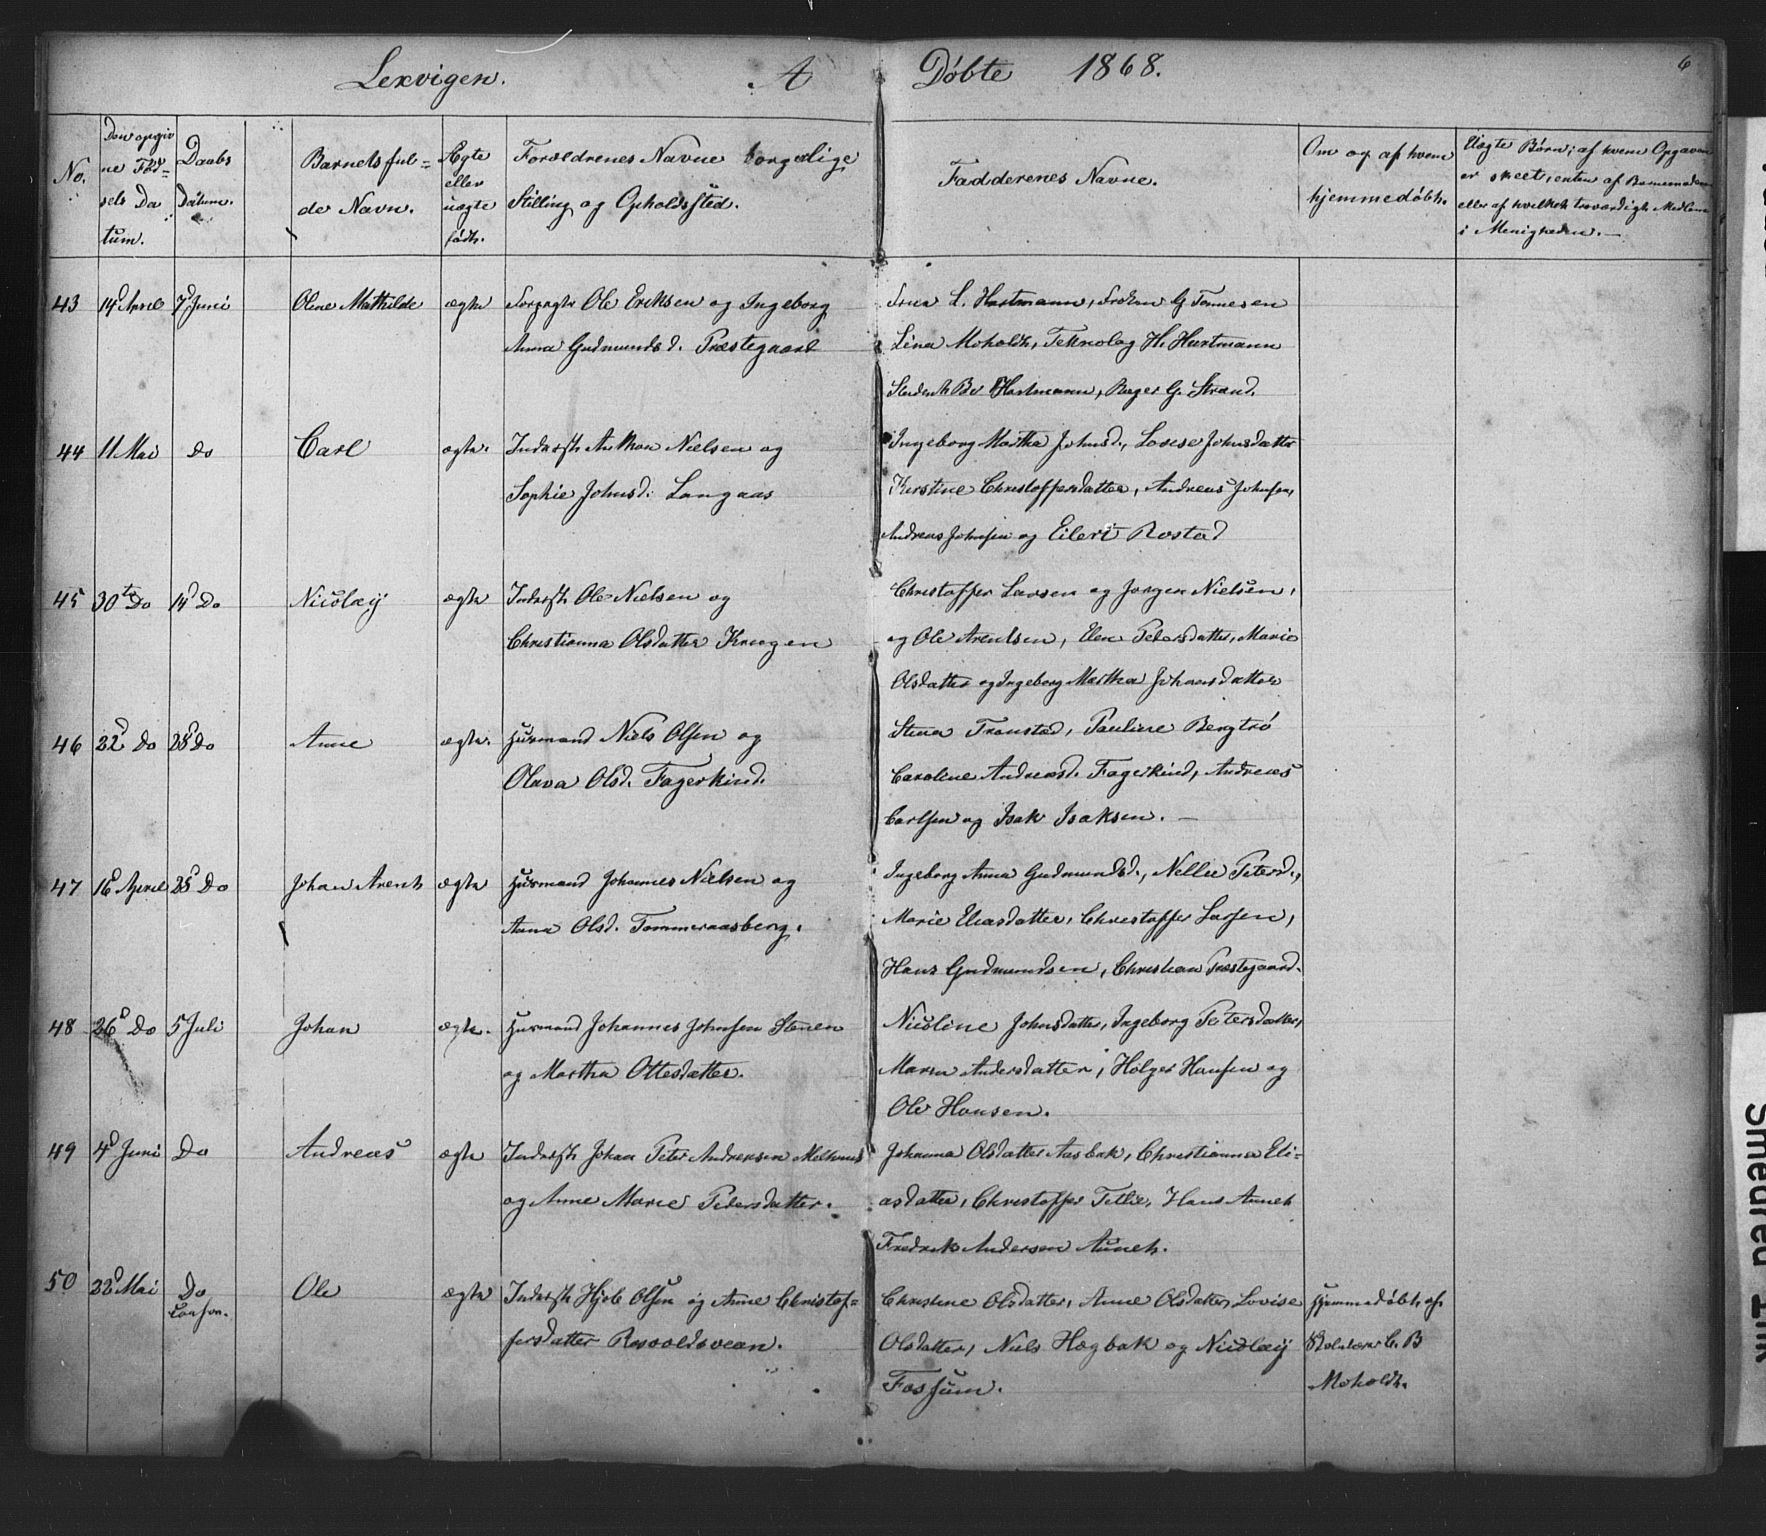 Lexvigen. A Døbte 1868. 6
No.
Den opgiv
ne Fød=
sels Da
tum.
Daabs
Dátum.
Barnets ful=
de Navn.
Ægte
eller
uægte
født.
Forældrenes Navne borgerlige
Stilling og Opholdssted.
Fadderenes Navne.
Om og af hvem
hjemmedøbt.
Uægte Børn; af hvem Opgaven
er skeet, enten af Barnemoderen
eller af hvilket troværdigt Medlem
i Menigheden. —
43 14d April 7d Juni Oline Mathilde ægte Forpagter Ole Eriksen og Ingeborg
Anna Gudmundsd. Præstegaard
Frue L. Hartmann, Frøken G. Tønnesen
Lina Moholdt, Teknolog H. Hartmann
Student Hartmann, G. Strand.
44 11 Mai Do Carl ægte. Inderst Anthon Nielsen og
Sophie Johnsd. Langaas
Ingeborg Martha Johnsd., Lovise Johnsdatter
Kirstine Christoffersdatter, Andreas Johnsen,
Andreas Johnsen og Eilert Rostad
45 30te Do 14d Do Nicolay ægte Inderst Ole Nielsen og
Christianna Olsdatter Krogen
Christoffer Larsen og Jørgen Nielsen,
og Ole Arentsen, Elen Petersdatter, Marie
Olsdatter og Ingeborg Martha Johansdatter
46 22d Do 28d Do Anne ægte. Husmand Niels Olsen og
Olava Olsd. Fagerkind.
Stina Transtad, Pauline Bergtrø
Caroline Andreasd. Fagerkind, Andreas
Carlsen og Isak Isaksen. —
47 16d April 28d Do Johan Arent ægte Husmand Johannes Nielsen og
Anna Olsd. Tømmeraasberg.
Ingeborg Anna Gudmundsd., Nellie Petersd.,
Marie Eliasdatter, Christoffer Larsen,
Hans Gudmundsen, Christian Præstegaard.
48 26d Do 5 Juli Johan ægte. Husmand Johannes Johnsen Stenen
og Martha Ottesdatter.
Nicoline Johnsdatter, Ingeborg Petersdatter,
Maren Andersdatter, Holger Hansen og
Ole Hansen.
49 4d Juni Do Andreas ægte Inderst Johan Peter Andreasen Melhuus
og Anne Marie Pedersdatter.
Johanna Olsdatter Aasbak, Christianna Eli=
asdatter, Christoffer Tellie, Hans Aunet
Fredrik Andersen Aunet.
50 22d Mai Do
Confor.
Ole ægte Inderst Hjeb Olsen og Anne Christof=
fersdatter Rosvoldsvean.
Christine Olsdatter, Anne Olsdatter, Lovise
Olsdatter, Niels Hægbak og Nicolay
Fossum.
Hjemmedøbt af
Skolelærer C. B
Moholdt.